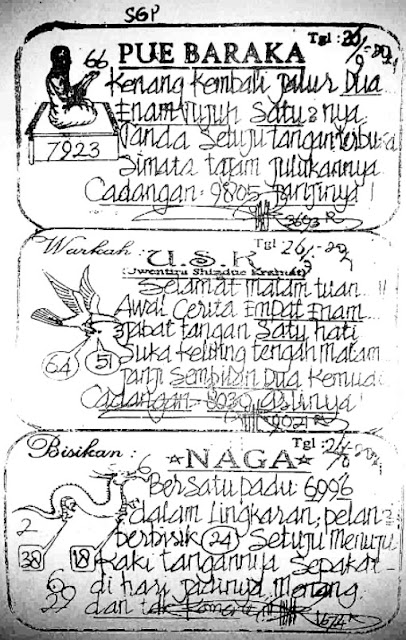 SGP
Tgl : 26/9-202
66
PUE BARAKA
Kenang kembali jalur Dua
Enam Tujuh Satu nya
Tanda Setuju tangan terbuka
Simata tajam julukannya
7923
Cadangan : 9805 janjinya !
3693
Warkah :
U.S.K
Tgl 26/9-202
(Uwentira Shizduo Krahiat)
Selamat malam tuan..!!
Awal Cerita Empat Enam
Jabat tangan Satu hati
64
51
Suka keliling tengah malam
janji Sembilan Dua Kemudi
Cadangan - 8030 aslinya !
9021
Bisikan :
NAGA
Tgl : 26/9-202
6
Bersatu padu 6996
dalam Lingkaran, pelan2
2
berbisik 24 Setuju Menuju
38
18
Kaki tangannya Sepakat
6
di hari jadinya Menang
29
dan tak
1674